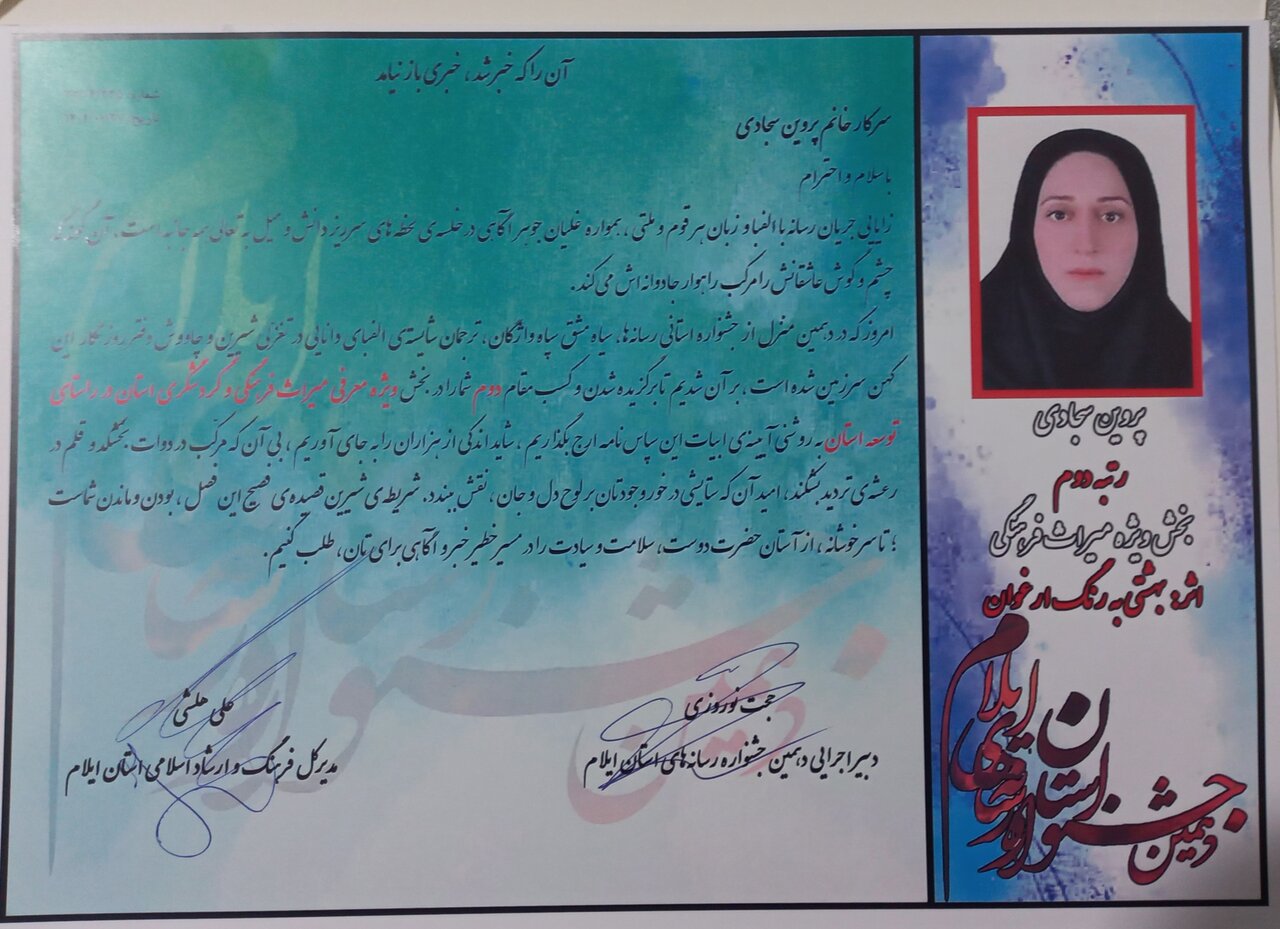 آن را که خبر شد، خبری باز نیامد
سرکار خانم پروین سجادی
با سلام و احترام
زایایی جریان رسانه با الفبا و زبان هر قوم و ملتی، همواره غلیان جوهر آگاهی در خلسه‌ی لحظه‌های سرریز دانش و میل به تعالی است، آن
چشم و گوش عاشقانش را مرکب راهوار جادوانه‌اش می‌کند.
امروز که در دهمین منزل از جشنواره استانی رسانه‌ها، سیاه مشق سپاه واژگان، ترجمان شایسته‌ی الفبای دانایی در تغزلی شیرین و چاووش دفتر روزگار این
کهن سرزمین شده است، بر آن شدیم تا برگزیده شدن و کسب مقام دوم شما را در بخش ویژه معرفی میراث فرهنگی و گردشگری استان در راستای
توسعه استان به روشنی آیینه‌ی ابیات این سپاس نامه ارج بگذاریم، شاید اندکی از هزاران را به جای آوریم، بی آن که مرکب در دوات بخشکد و قلم در
رعشه‌ی تردید بشکند، امید آن که ستایشی در خور وجودتان بر لوح دل و جان، نقش ببندد. شریطه‌ی شیرین قصیده‌ی فصیح این فصل، بودن و ماندن شماست
؛ تا سرخوشانه، از آستان حضرت دوست، سلامت و سیادت را در مسیر خطیر خبر و آگاهی برای تان، طلب کنیم.
حجت نوروزی
دبیر اجرایی دهمین جشنواره رسانه‌های استان ایلام
علی هلشی
مدیرکل فرهنگ و ارشاد اسلامی استان ایلام
پروین سجادی
رتبه دوم
بخش ویژه میراث فرهنگی
اثر: بهشتی به رنگ ارغوان
دهمین جشنواره رسانه‌های استان ایلام